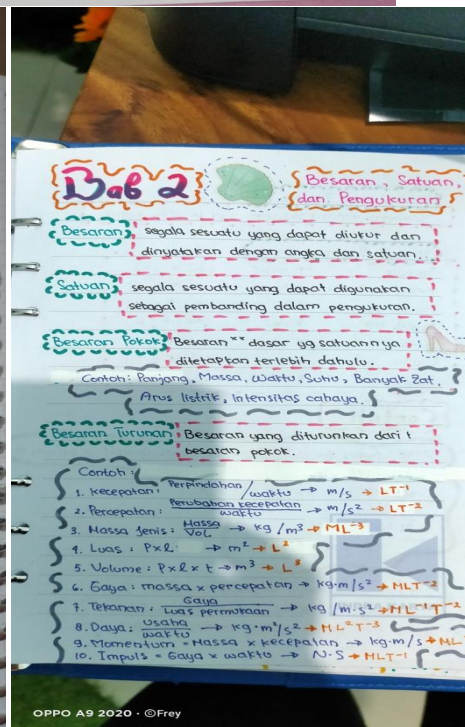 Bab 2
Besaran, Satuan,
dan Pengukuran
Besaran
segala sesuatu yang dapat diukur dan
dinyatakan dengan angka dan satuan.
Satuan
segala sesuatu yang dapat digunakan
sebagai pembanding dalam pengukuran.
Besaran Pokok
Besaran** dasar yg satuannya
ditetapkan terlebih dahulu.
Contoh: Panjang, Massa, Waktu, Suhu, Banyak Zat,
Arus listrik, Intensitas cahaya.
Besaran Turunan
Besaran yang diturunkan dari
besaran pokok.
Contoh:
1. Kecepatan: Perpindahan/waktu → m/s → LT⁻¹
2. Percepatan: Perubahan kecepatan/waktu → m/s² → LT⁻²
3. Massa Jenis: Massa/Vol. → kg/m³ → ML⁻³
4. Luas: P×l → m² → L²
5. Volume: P×l×t → m³ → L³
6. Gaya: massa × percepatan → kg·m/s² → MLT⁻²
7. Tekanan: Gaya/Luas permukaan → kg/m·s² → ML⁻¹T⁻²
8. Daya: usaha/waktu → kg·m²/s² → ML²T⁻³
9. Momentum = Massa × kecepatan → kg·m/s → ML
10. Impuls = Gaya × waktu → N·S → MLT⁻¹
OPPO A9 2020 · ©Frey